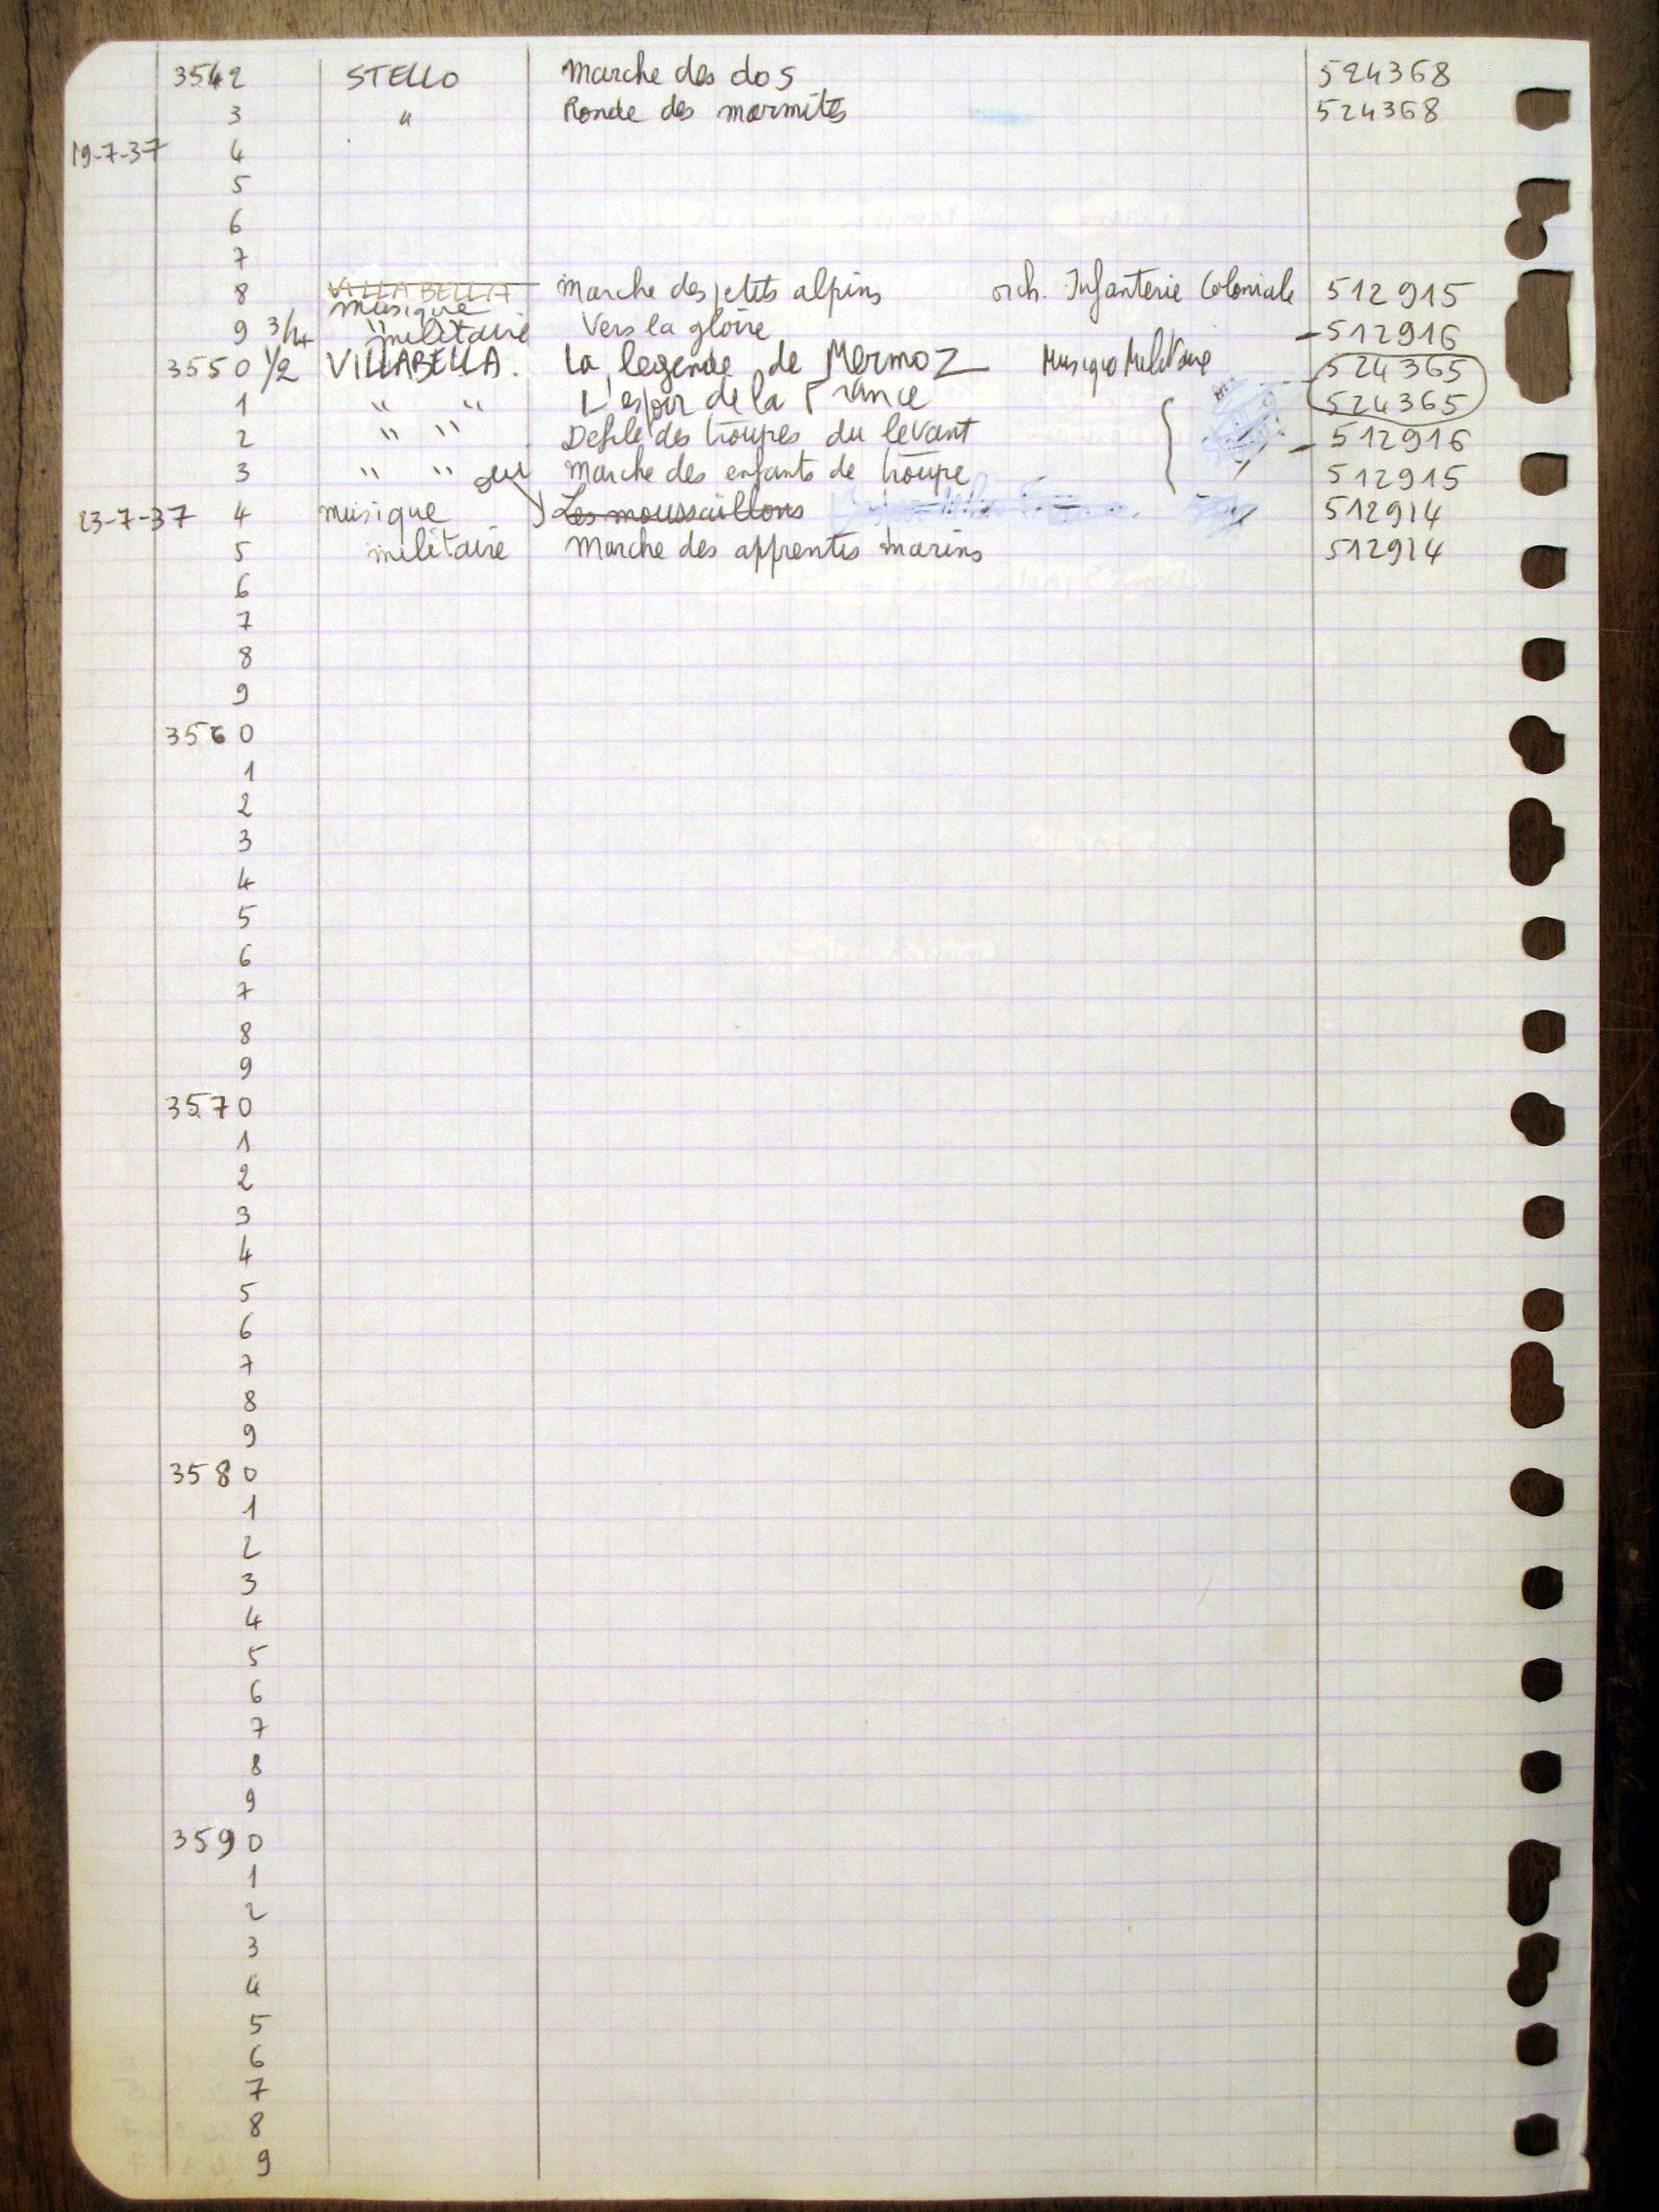 3542 STELLO Marche des dos 524368
3 " Ronde des marmites 524368
19-7-37 4
5
6
7
8 VILLABELLA Marche des petits alpins orch. Infanterie Coloniale 512915
musique
9 3/4 " militaire Vers la gloire - 512916
3550 1/2 VILLABELLA. La légende de Mermoz Musique Militaire 524365
1 " " L'espoir de la France 524365
2 " " Défilé des troupes du levant - 512916
3 " " ou Marche des enfants de troupe 512915
23-7-37 4 musique Les moussaillons 512914
5 militaire Marche des apprentis marins 512914
6
7
8
9
3560
1
2
3
4
5
6
7
8
9
3570
1
2
3
4
5
6
7
8
9
3580
1
2
3
4
5
6
7
8
9
3590
1
2
3
4
5
6
7
8
9